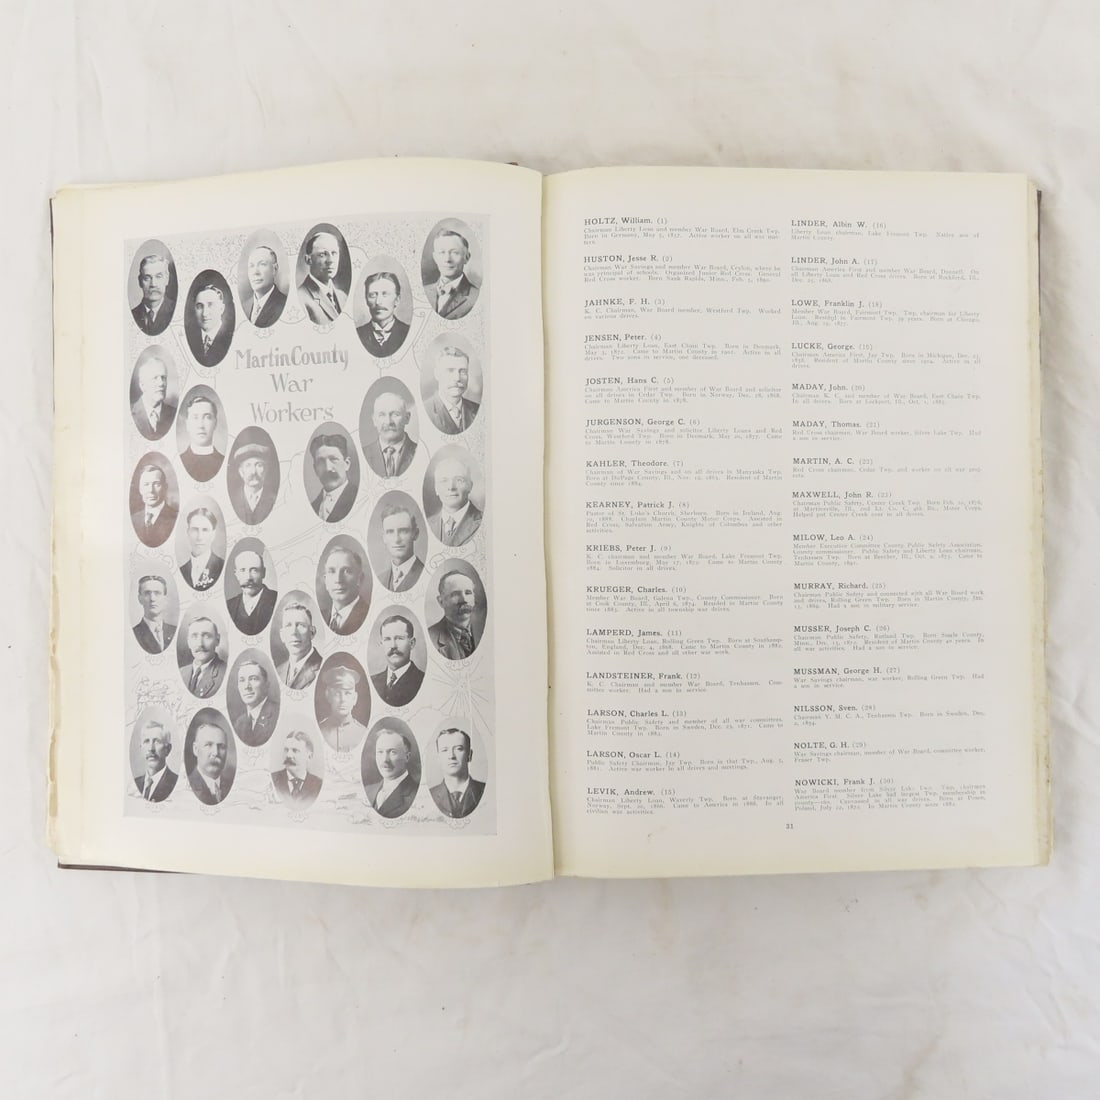 Martin County
War
Workers
HOLTZ, William. (1)
Chairman Liberty Loan and member War Board, Elm Creek Twp.
Born in Germany, May 5, 1857. Active worker on all war mat-
ters.
HUSTON, Jesse R. (2)
Chairman War Savings and member War Board, Ceylon, where he
was principal of schools. Organized Junior Red Cross. General
Red Cross worker. Born Sauk Rapids, Minn., Feb. 5, 1890.
JAHNKE, F. H. (3)
K. C. Chairman, War Board member, Westford Twp. Worked
on various drives.
JENSEN, Peter. (4)
Chairman Liberty Loan, East Chain Twp. Born in Denmark,
May 3, 1872. Came to Martin County in 1902. Active in all
drives. Two sons in service, one deceased.
JOSTEN, Hans C. (5)
Chairman America First and member of War Board and solicitor
on all drives in Cedar Twp. Born in Norway, Dec. 28, 1868.
Came to Martin County in 1878.
JURGENSON, George C. (6)
Chairman War Savings and solicitor Liberty Loans and Red
Cross, Westford Twp. Born in Denmark, May 20, 1877. Came
to Martin County in 1878.
KAHLER, Theodore. (7)
Chairman of War Savings and on all drives in Manyaska Twp.
Born at DuPage County, Ill., Nov. 15, 1863. Resident of Martin
County since 1884.
KEARNEY, Patrick J. (8)
Pastor of St. Luke's Church, Sherburn. Born in Ireland, Aug.
20, 1888. Chaplain Martin County Motor Corps. Assisted in
Red Cross, Salvation Army, Knights of Columbus and other
activities.
KRIEBS, Peter J. (9)
K. C. chairman and member War Board, Lake Fremont Twp.
Born in Luxemburg, May 17, 1872. Came to Martin County in
1884. Solicitor in all drives.
KRUEGER, Charles. (10)
Member War Board, Galena Twp., County Commissioner. Born
at Cook County, Ill., April 6, 1874. Resided in Martin County
since 1883. Active in all township war drives.
LAMPERD, James. (11)
Chairman Liberty Loan, Rolling Green Twp. Born at Southamp-
ton, England, Dec. 4, 1868. Came to Martin County in 1880.
Assisted in Red Cross and all other war work.
LANDSTEINER, Frank. (12)
K. C. Chairman and member War Board, Tenhassen. Com-
mittee worker. Had a son in service.
LARSON, Charles L. (13)
Chairman Public Safety and member of all war committees,
Lake Fremont Twp. Born in Sweden, Dec. 23, 1871. Came to
Martin County in 1883.
LARSON, Oscar L. (14)
Public Safety Chairman, Jay Twp. Born in that Twp., Aug. 5,
1881. Active war worker in all drives and meetings.
LEVIK, Andrew. (15)
Chairman Liberty Loan, Waverly Twp. Born at Stavanger,
Norway, Sept. 20, 1866. Came to America in 1868. In all
civilian war activities.
LINDER, Albin W. (16)
Liberty Loan chairman, Lake Fremont Twp. Native son of
Martin County.
LINDER, John A. (17)
Chairman America First and member War Board, Dunnell. On
all Liberty Loan and Red Cross drives. Born at Rockford, Ill.,
Dec. 25, 1868.
LOWE, Franklin J. (18)
Member War Board, Fairmont Twp. Twp. chairman for Liberty
Loan. Resided in Fairmont Twp. 39 years. Born at Chicago,
Ill., Aug. 19, 1877.
LUCKE, George. (15)
Chairman America First, Jay Twp. Born in Michigan, Dec. 13,
1858. Resident of Martin County since 1904. Active in all
drives.
MADAY, John. (20)
Chairman K. C. and member of War Board, East Chain Twp.
In all drives. Born at Lockport, Ill., Oct. 1, 1885.
MADAY, Thomas. (21)
Red Cross chairman, War Board worker, Silver Lake Twp. Had
a son in service.
MARTIN, A. C. (22)
Red Cross chairman, Cedar Twp., and worker on all war proj-
ects.
MAXWELL, John R. (23)
Chairman Public Safety, Center Creek Twp. Born Feb. 20, 1876,
at Martinsville, Ill., 2nd Lt. Co. C, 4th Bn., Motor Corps.
Helped put Center Creek over in all drives.
MILOW, Leo A. (24)
Member Executive Committee County Public Safety Association.
County commissioner. Public Safety and Liberty Loan chairman,
Tenhassen Twp. Born at Beecher, Ill., Oct. 9, 1873. Came to
Martin County, 1891.
MURRAY, Richard. (25)
Chairman Public Safety and connected with all War Board work
and drives, Rolling Green Twp. Born in Martin County, Jan.
13, 1869. Had a son in military service.
MUSSER, Joseph C. (26)
Chairman Public Safety, Rutland Twp. Born Steele County,
Minn., Dec. 15, 1872. Resident of Martin County 40 years. In
all war activities. Had a son in service.
MUSSMAN, George H. (27)
War Savings chairman, war worker, Rolling Green Twp. Had
a son in service.
NILSSON, Sven. (28)
Chairman Y. M. C. A., Tenhassen Twp. Born in Sweden, Dec.
2, 1894.
NOLTE, G. H. (29)
War Savings chairman, member of War Board, committee worker,
Fraser Twp.
NOWICKI, Frank J. (30)
War Board member from Silver Lake Twp. Twp. chairman
America First. Silver Lake had largest Twp. membership in
county. Canvassed in all war drives. Born at Posen,
Poland, July 22, 1872. In Martin County since 1882.
31